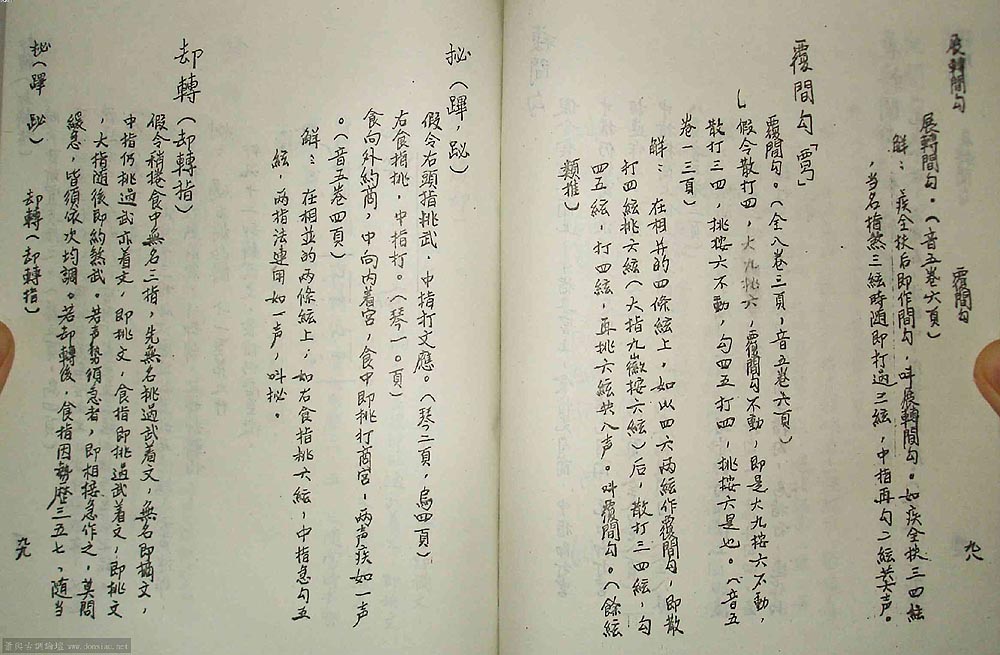 展轉間勾
覆間勾
展轉間勾。（音五卷六頁）
解：疾全扶后即作間勾，叫展轉間勾。如疾全扶三四絃
，当名指煞三絃時随即打過二絃，中指再勾二絃共声。
覆間勾「」
覆間勾。（全八卷三頁，音五卷六頁）
假令散打四，大九挑六，覆間勾不動，即是大九按六不動，
散打三四，挑按六不動，勾四五打四，挑按六是也。（音五
卷一三頁）
解：在相并的四條絃上，如以四六两絃作覆間勾，即散
打四絃挑六絃（大指九徽按六絃）后，散打三四絃，勾
四五絃，打四絃，再挑六絃共八声。叫覆間勾。（餘絃
類推）
九八
㧙（蹕，䟆）
假令右頭指挑武，中指打文應。（琴二頁，烏四頁）
右食指挑，中指打。（琴一。頁）
食向外約商，中向内着宮，食中即挑打商宮，两声疾如一声
。（音五卷四頁）
解：在相並的两條絃上，如右食指挑六絃，中指急勾五
絃，两指法連用如一声，叫㧙。
却轉（却轉指）
假令稍捲食中無名三指，先無名挑過武着文，無名即摘文，
中指仍挑過武亦着文，即挑文，食指即挑過武着文，即挑文
，大指随後即約煞武。若声势須急者，即相接急作之，莫問
緩急，皆須依次均調。若却轉後，食指因势歷三五七，随当
㧙（蹕 䟆）
却轉（却轉指）
九九
www.donxiao.net